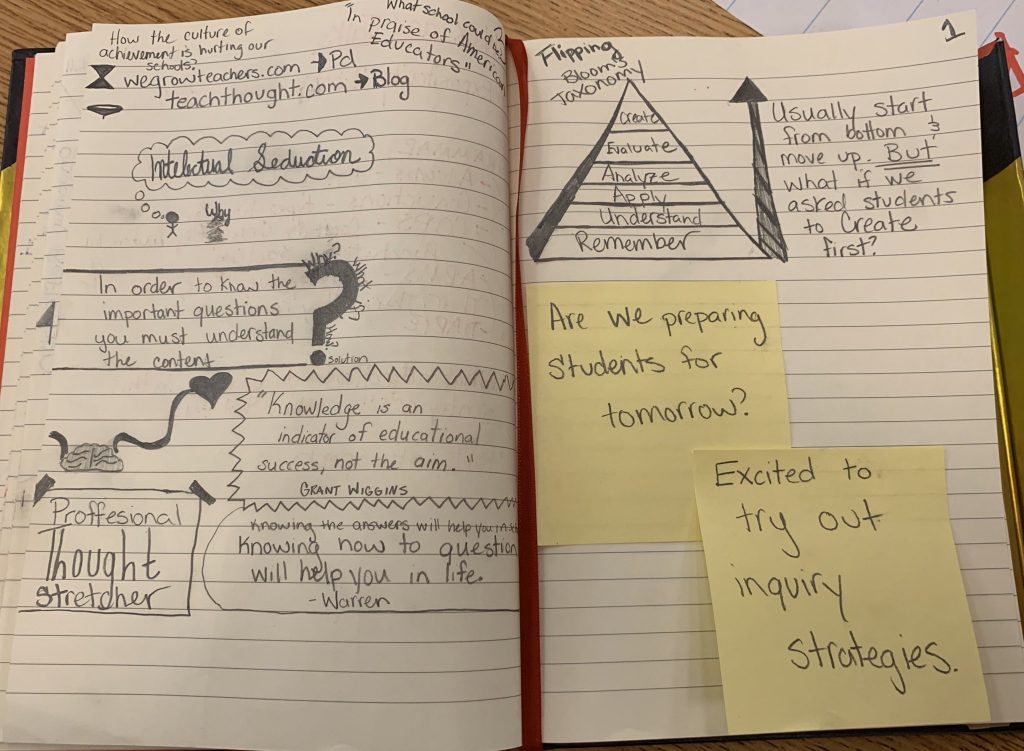 How the culture of
achievement is hurting our
schools?
wegrowteachers.com → Pd
teachthought.com → Blog
What school could be
"In praise of American
Educators"
2
Intelectual Seduction
Why
In order to know the
important questions
you must understand
the content
Why?
solution
"Knowledge is an
indicator of educational
success, not the aim."
GRANT WIGGINS
Proffesional
Thought
stretcher
Knowing the answers will help you in
Knowing how to question
will help you in life.
- Warren
1
Flipping
Blooms
Taxonomy
Create
Evaluate
Analyze
Apply
Understand
Remember
Usually start
from bottom &
move up. But
what if we
asked students
to Create
first?
Are we preparing
students for
tomorrow?
Excited to
try out
inquiry
strategies.